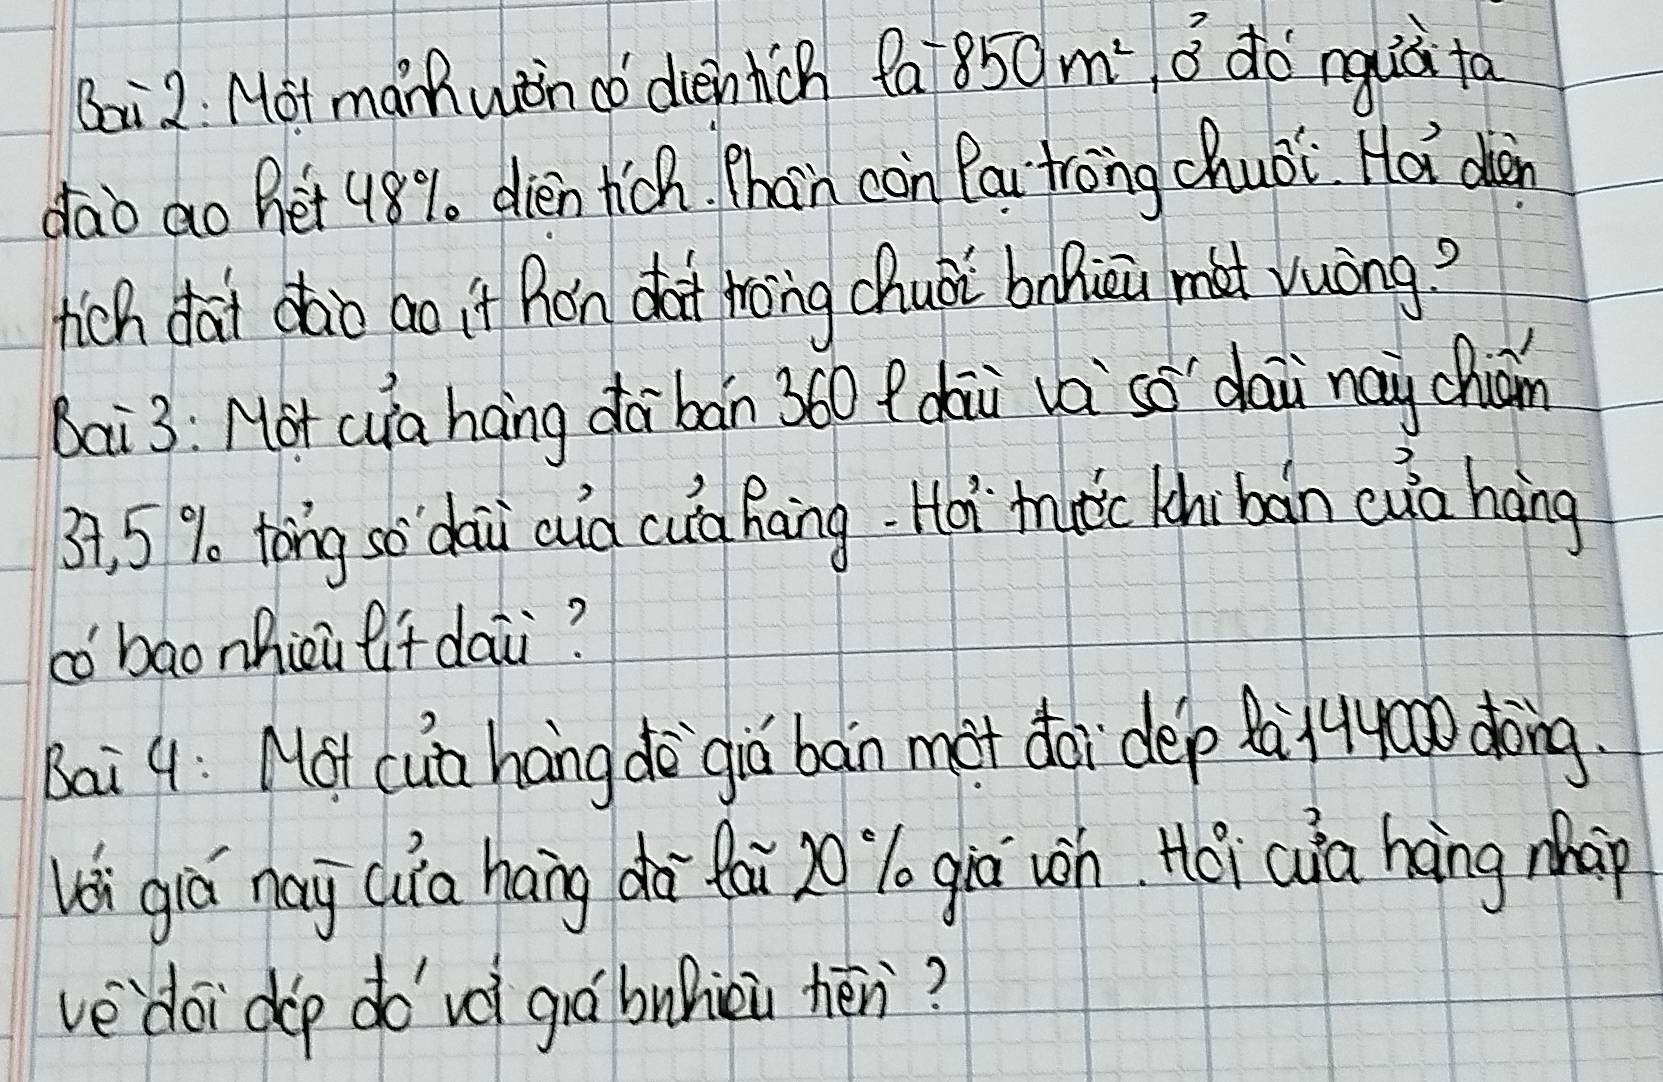 Bài 2: Một mảnh vườn có diện tích là 850 m², ở đó người ta
đào ao hết 48% diện tích. Phần còn lại trồng chuối. Hỏi diện
tích đất đào ao ít hơn đất trồng chuối bnhiêu mét vuông?
Bài 3: Một cửa hàng đã bán 360 l dầu và số dầu này chiếm
37,5% tổng số dầu của cửa hàng. Hỏi trước khi bán cửa hàng
có bao nhiêu lít dầu?
Bài 4: Một cửa hàng đề giá bán một đôi dép là 144000 đồng.
Với giá này cửa hàng đã lãi 20% giá vốn. Hỏi cửa hàng nhập
về đôi dép đó với giá bnhiêu tiền?